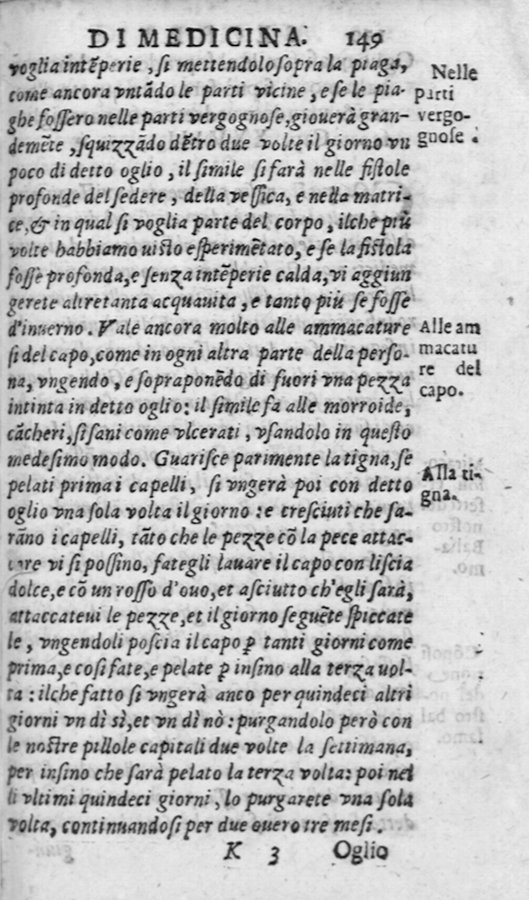 DI MEDICINA. 149
voglia intẽperie, si mettendolo sopra la piaga,
come ancora vntãdo le parti vicine, e se le pia-
ghe fossero nelle parti vergognose, giouerà gran-
demẽte, squizzãdo dẽtro due volte il giorno vn
poco di detto oglio, il simile si farà nelle fistole
profonde del sedere, della vessica, e nella matri-
ce, & in qual si voglia parte del corpo, ilche più
volte habbiamo uisto esperimẽtato, e se la fistola
fosse profonda, e senza intẽperie calda, vi aggiun
gerete altretanta acquauita, e tanto più se fosse
d'inuerno. Vale ancora molto alle ammacature
si del capo, come in ogni altra parte della perso-
na, vngendo, e soproponẽdo di fuori vna pezza
intinta in detto oglio: il simile fa alle morroide,
cãcheri, si sani come vlcerati, vsandolo in questo
medesimo modo. Guarisce parimente la tigna, se
pelati prima i capelli, si vngerà poi con detto
oglio vna sola volta il giorno: e cresciuti che sa-
rãno i capelli, tãto che le pezze cõ la pece attac-
care vi si possino, fategli lauare il capo con liscia
dolce, e cõ un rosso d'ouo, et asciutto ch'egli sarà,
attaccateui le pezze, et il giorno seguẽte spiccate
le, vngendoli poscia il capo ꝑ tanti giorni come
prima, e cosi fate, e pelate ꝑ insino alla terza uol-
ta: ilche fatto si vngerà anco per quindeci altri
giorni vn dì sì, et vn dì nò: purgandolo però con
le nostre pillole capitali due volte la settimana,
per insino che sarà pelato la terza volta: poi nel
li vltimi quindeci giorni, lo purgarete vna sola
volta, continuandosi per due ouero tre mesi.
K 3 Oglio
Nelle
parti
vergo-
gnose.
Alle am
macatu
re del
capo.
Alla ti-
gna.